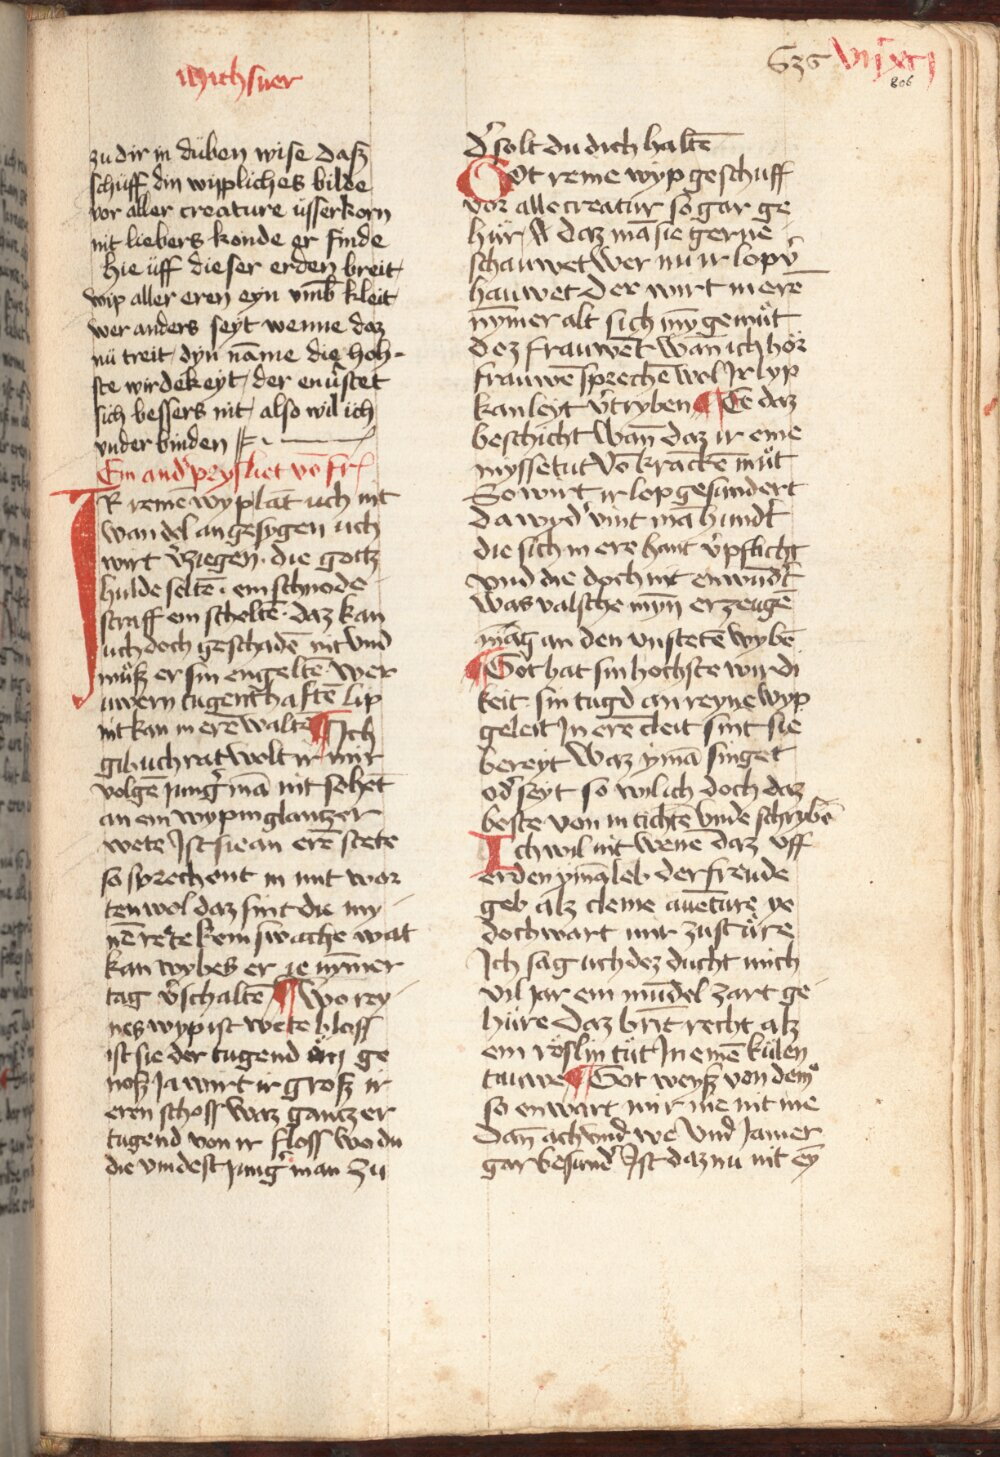 Michsner
zu dir in düben wise daß
schüff din wypliches bilde
vor aller creature üsserkorn
nit liebers konde er finde
hie üff dieser erden breit
wip aller eren eyn vmb kleit
wer anders seyt wenne daz
nü treit dyn nāme die hoh-
ste wirdekeyt der en ústet
sich bessers nit also wil ich
vnder binden
Ein and' prys liet vō fr
IR reinē wyp lāt uch nit
wandel an gesygen uch
wirt v'ziegen. die gottz
hulde seltē. ein schnode
straff ein scheltē. daz kan
uch doch geschadē nit vnd
müß er sin engeltē wer
uwern tugenthaftē lip
nit kan in erē waltē ¶ Ich
gib uch rat wolt ir mir
volgē jung' mā nit sehēt
an ein wyp in glantzer
wete Ist sie an erē stete
so sprechent in mit wor
ten wol daz sint die my
nē rete kein swache wat
kan wybes er ie nymmer
tag v'schaltē ¶ Wo rey
nes wyp ist wete bloss
ist sie der tugend ir ge
noß Ja wirt ir groß ir
eren schoss waz gantzer
tugend von ir floss wo du
die vindest jung' man zu
d' solt du dich haltē
Got reine wyp geschuff
vor alle creatur so gar ge
hür daz mā sie gerne
schauwet wer nu ir lop v'
hauwet der wirt in erē
nymer alt sich myn gemüt
dez frauwēt wān ich hör
frauwē sprechē wol Ir lyp
kan leyt v'tryben ¶ Ee daz
beschicht wān daz ir eine
myssetut vō kranckē müt
So wirt ir lop gesundert
da wyd' vint mā hund't
die sich in ere hant v'pflicht
vnd die doch nit enwund't
was valsche myn erzeugē
mag an den vnstetē wybē
¶ Got hat sin hochste wirdi
keit sin tugd an reyne wyp
geleit In erē cleit sint sie
bereyt waz ymā singet
od' seyt so wil ich doch daz
beste von in tichtē vnde schrybē
Ich wil nit wenē daz vff
erden ymā leb der freude
geb alz cleine auēture ye
doch wart mir zu stüre
Ich sag uch dez ducht mich
vil jar ein mūdel zart ge
hüre daz brīt recht alz
ein röslin tüt In einē külen
tauwe ¶ Got weyß von dem
so enwart mir nie nit me
dan ach vnd we vnd Jamer
gar besund' Ist daz nu nit ey
VIIIxCI
806